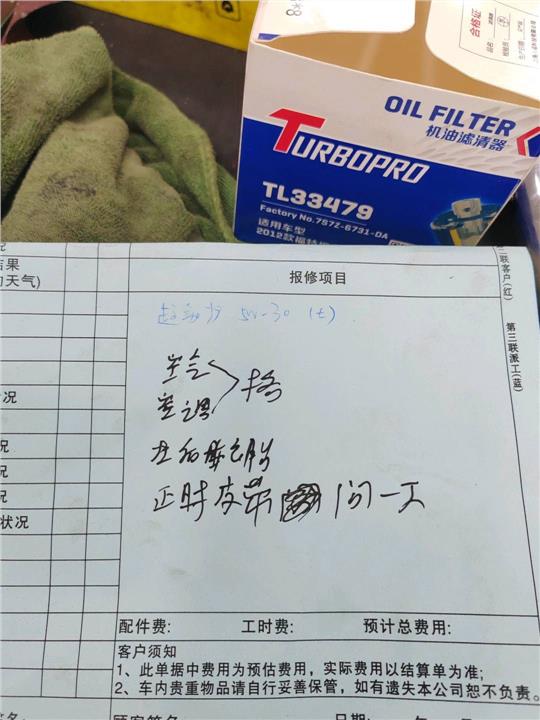 合格证
品名
OIL FILTER
机油滤清器
TURBOPRO
TL33479
Factory No.7S7Z-6731-DA
适用车型
2012款福特
报修项目
三联客户(红)
第三联派工(蓝)
结果
天气)
5W-30
空气
空调
格
正时皮带 问一下
状况
配件费:
工时费:
预计总费用:
客户须知
1、此单据中费用为预估费用，实际费用以结算单为准;
2、车内贵重物品请自行妥善保管，如有遗失本公司恕不负责。
顾客签名
日期: